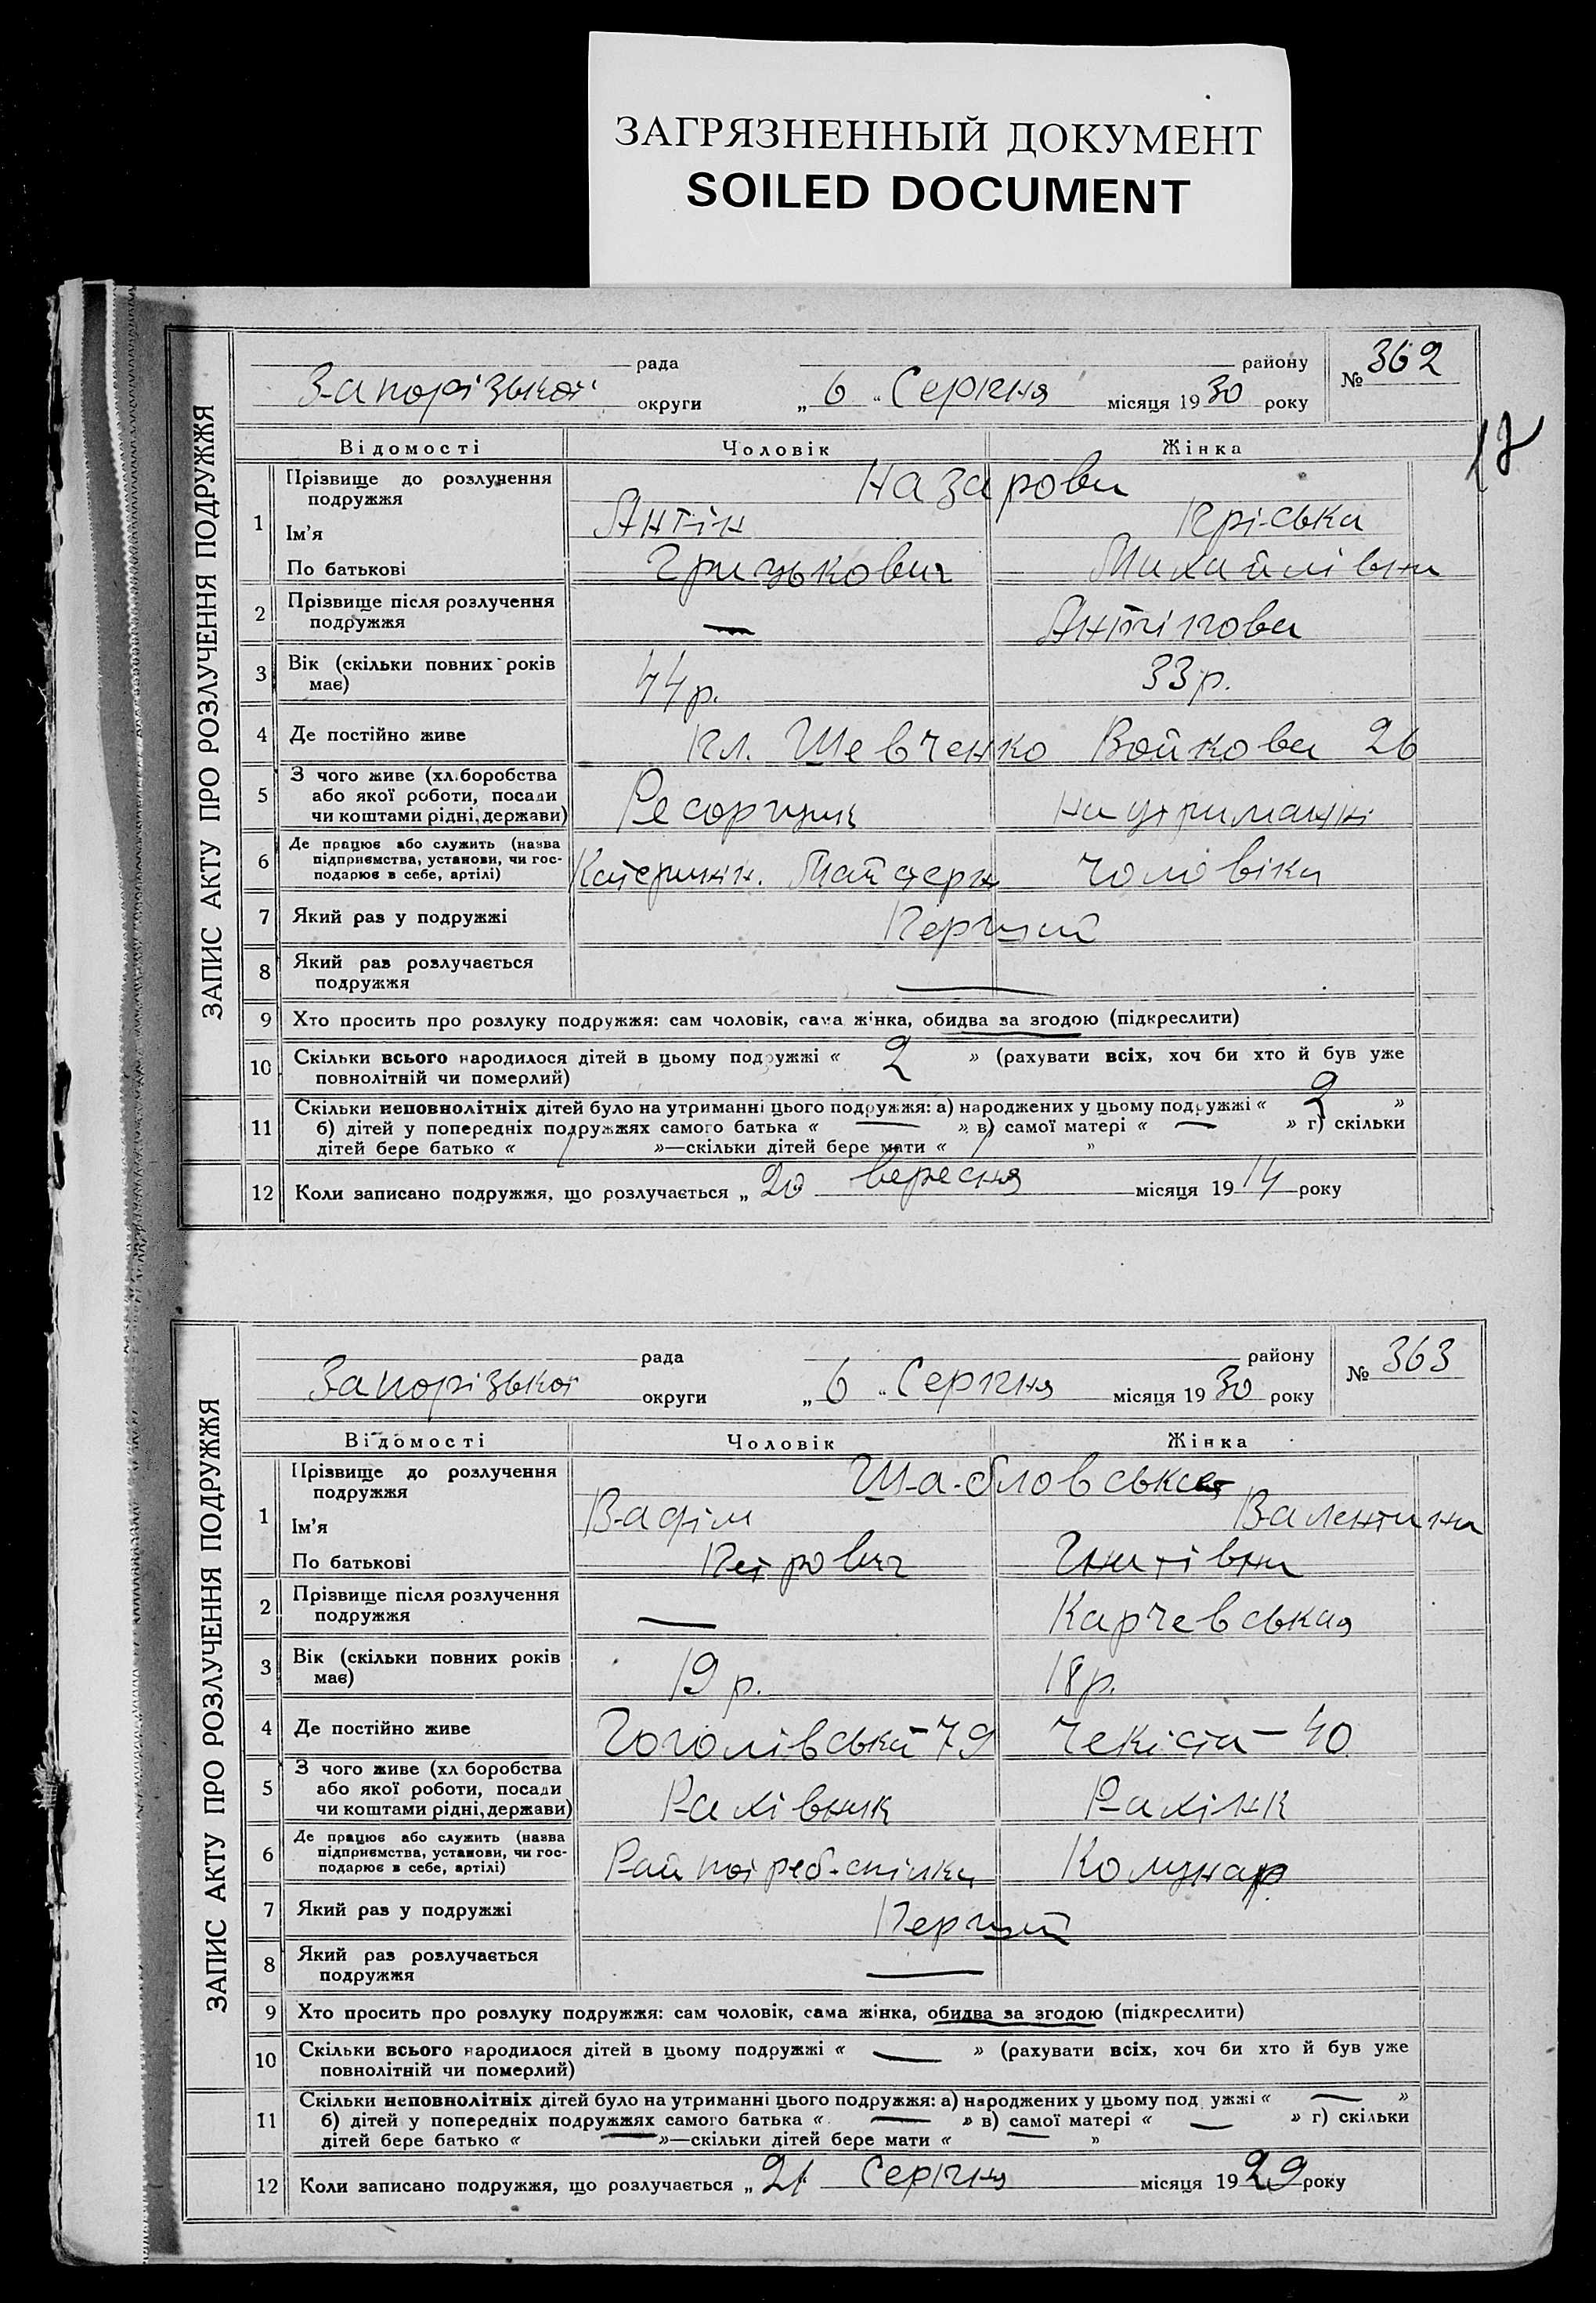 ЗАГРЯЗНЕННЫЙ ДОКУМЕНТ
SOILED DOCUMENT
ЗАПИС АКТУ ПРО РОЗЛУЧЕННЯ ПОДРУЖЖЯ
рада району № 362
Запорізької округи „ 6 “ Серпня місяця 1930 року
17
Відомості Чоловік Жінка
1 Прізвище до розлучення подружжя Назарови
Ім'я Антін Пріська
По батькові Грицькович Михайлівна
2 Прізвище після розлучення подружжя — Антіпова
3 Вік (скільки повних років має) 44 р. 33 р.
4 Де постійно живе пл. Шевченко Войкова 26
5 З чого живе (хл.боробства або якої роботи, посади чи коштами рідні, держави) Ресорщик на утриманні
6 Де працює або служить (назва підприємства, установи, чи господарює в себе, артілі) Катеринін. чоловіка
7 Який раз у подружжі Перший
8 Який раз розлучається подружжя —
9 Хто просить про розлуку подружжя: сам чоловік, сама жінка, обидва за згодою (підкреслити)
10 Скільки всього народилося дітей в цьому подружжі « 2 » (рахувати всіх, хоч би хто й був уже
повнолітній чи померлий)
11 Скільки неповнолітніх дітей було на утриманні цього подружжя: а) народжених у цьому подружжі « 2 »
б) дітей у попередніх подружжях самого батька « — » в) самої матері « — » г) скільки
дітей бере батько « 1 »—скільки дітей бере мати « 1 »
12 Коли записано подружжя, що розлучається „ 20 вересня місяця 1914 року
ЗАПИС АКТУ ПРО РОЗЛУЧЕННЯ ПОДРУЖЖЯ
рада району № 363
Запорізької округи „ 6 “ Серпня місяця 1930 року
Відомості Чоловік Жінка
1 Прізвище до розлучення подружжя Шабловська
Ім'я Вадім Валентина
По батькові Петрович Гнатівна
2 Прізвище після розлучення подружжя — Карчевська
3 Вік (скільки повних років має) 19 р. 18 р.
4 Де постійно живе Гоголівська 79 Чекіста — 40
5 З чого живе (хл боробства або якої роботи, посади чи коштами рідні, держави) Рахівник
6 Де працює або служить (назва підприємства, установи, чи господарює в себе, артілі) Райпотребспілка Комунар
7 Який раз у подружжі Перший
8 Який раз розлучається подружжя —
9 Хто просить про розлуку подружжя: сам чоловік, сама жінка, обидва за згодою (підкреслити)
10 Скільки всього народилося дітей в цьому подружжі « — » (рахувати всіх, хоч би хто й був уже
повнолітній чи померлий)
11 Скільки неповнолітніх дітей було на утриманні цього подружжя: а) народжених у цьому под ужжі « — »
б) дітей у попередніх подружжях самого батька « — » в) самої матері « — » г) скільки
дітей бере батько « — »—скільки дітей бере мати « — »
12 Коли записано подружжя, що розлучається „ 21 Серпня місяця 1929 року